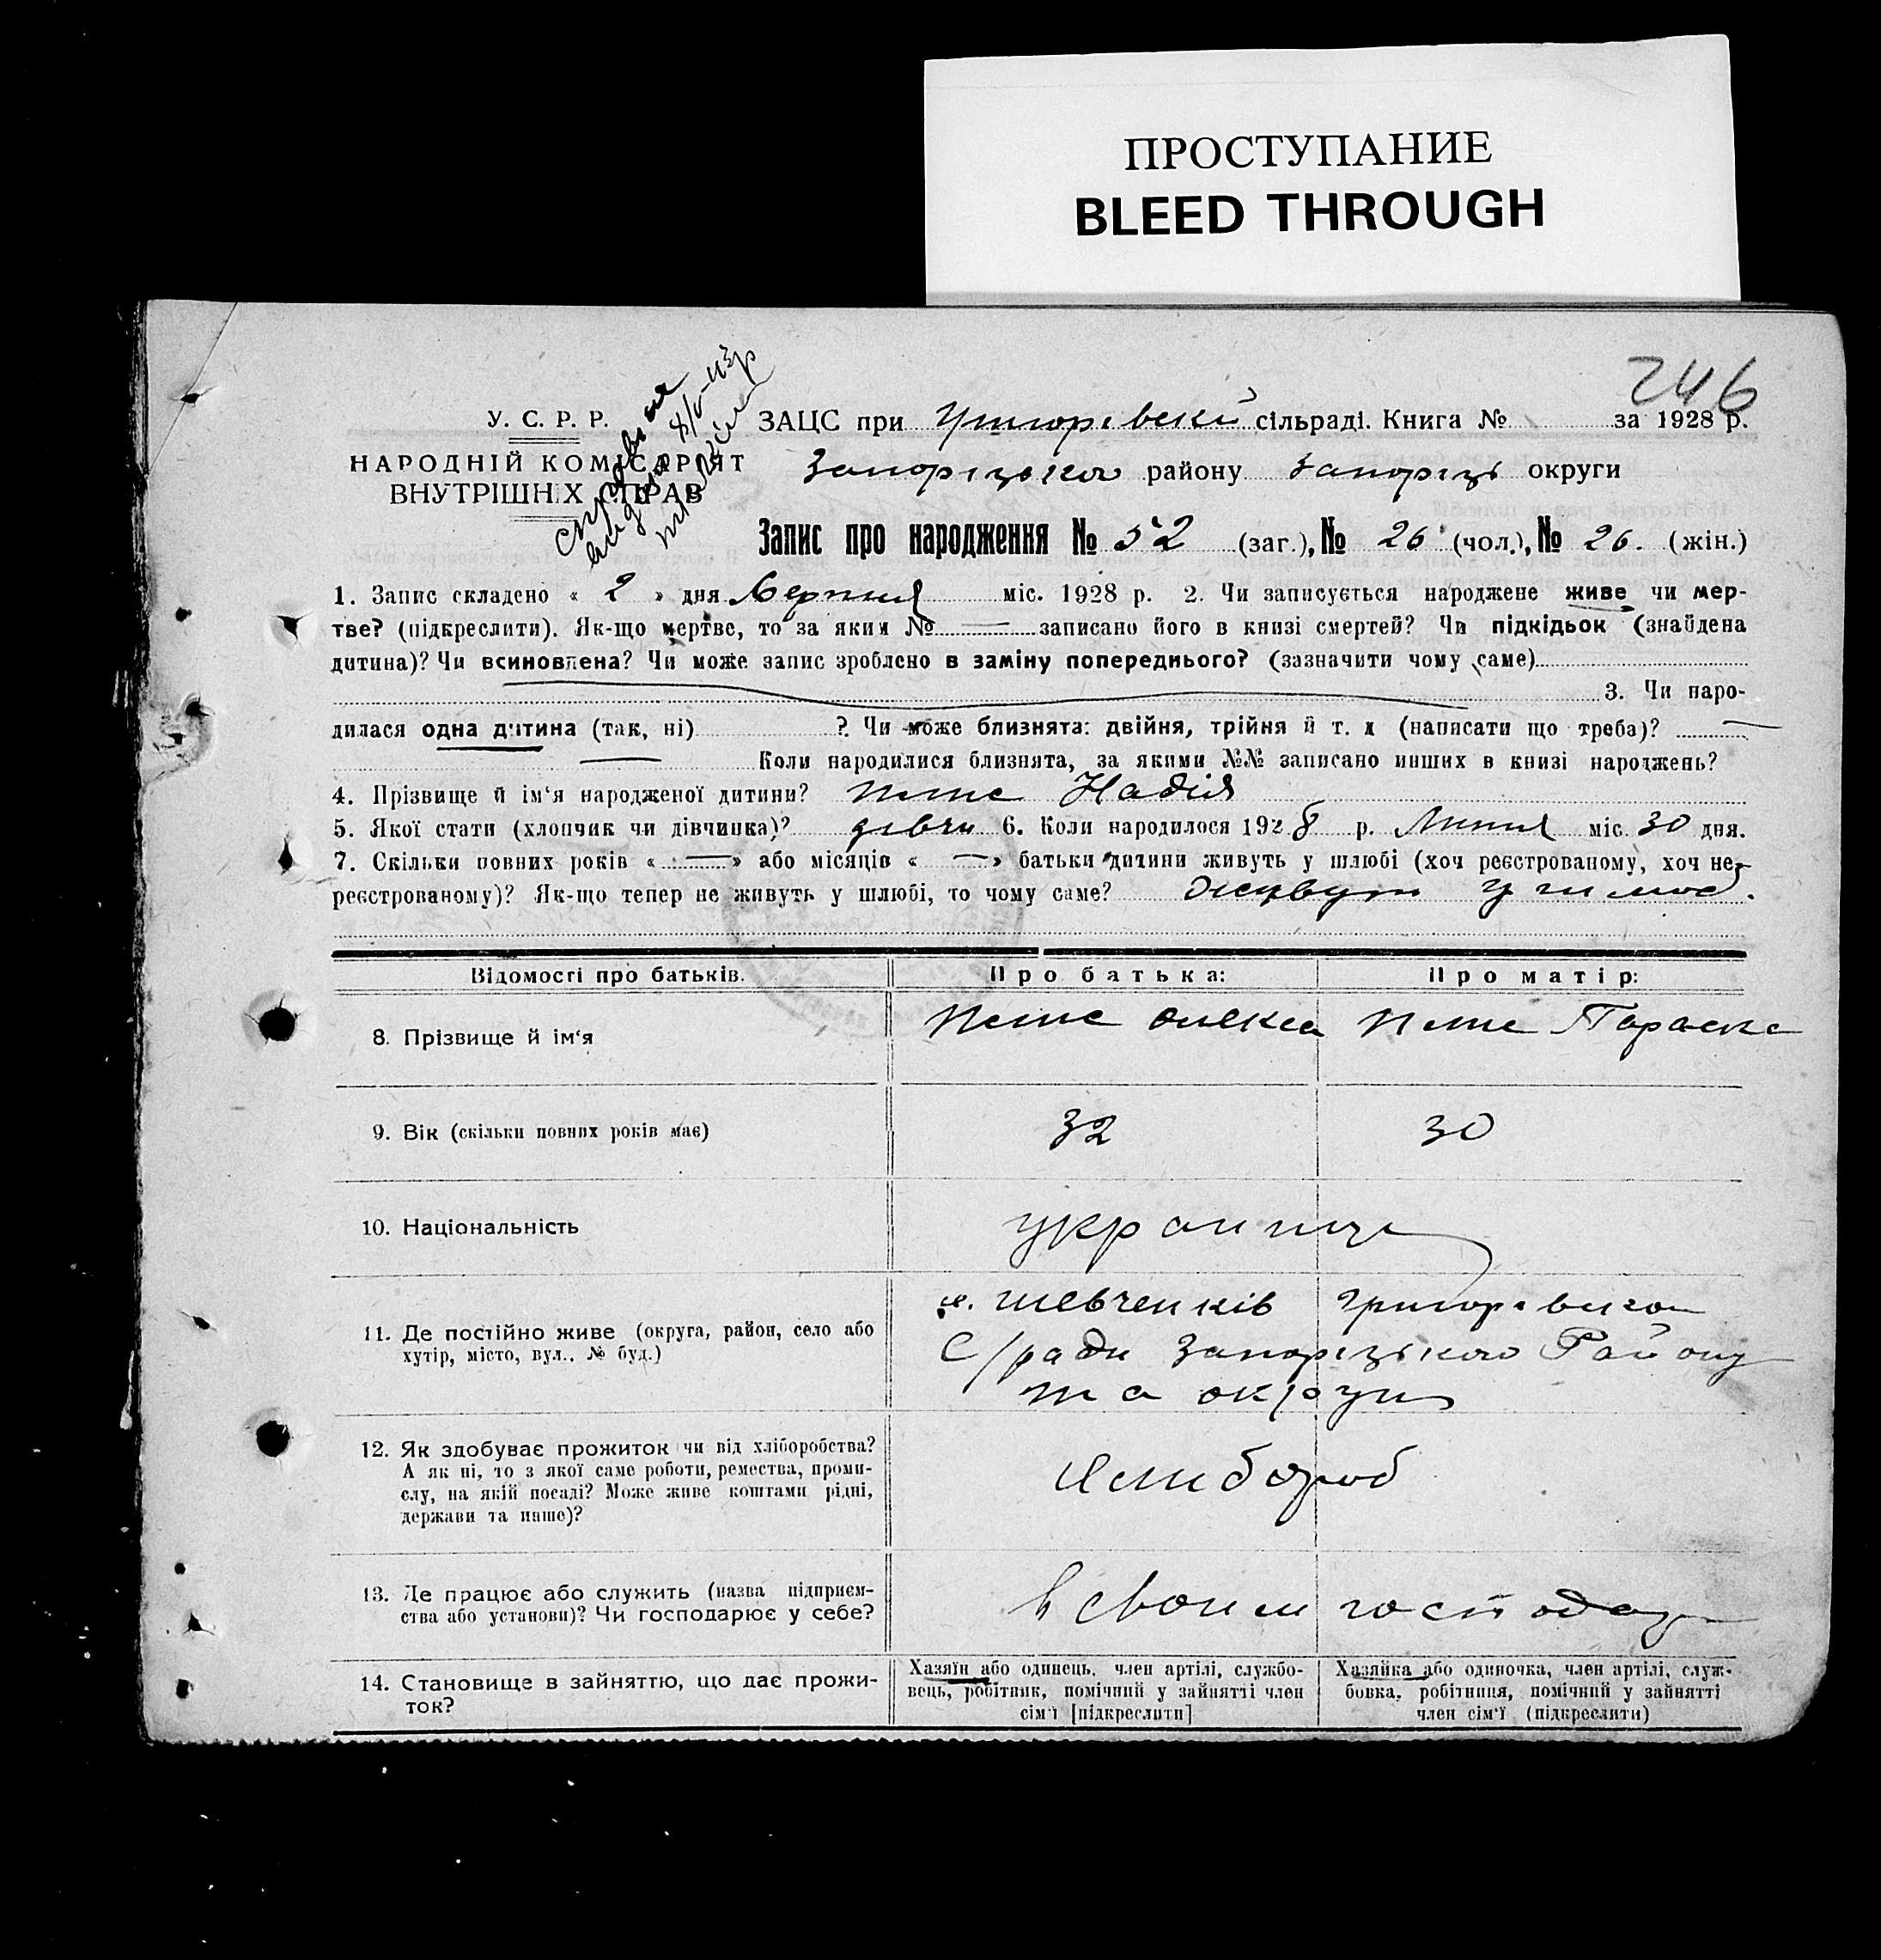 ПРОСТУПАНИЕ
BLEED THROUGH
246
У. С. Р. Р.
НАРОДНІЙ КОМІСАРІЯТ
ВНУТРІШНІХ СПРАВ
ЗАЦС при сільраді. Книга № за 1928 р.
району Запоріз округи
Запис про народження № 52 (заг.), № 26 (чол.), № 26. (жін.)
1. Запис складено « 2 » дня Серпня міс. 1928 р. 2. Чи записується народжене живе чи мер-
тве? (підкреслити). Як-що мертве, то за яким № — записано його в книзі смертей? Чи підкідьок (знайдена
дитина)? Чи всиновлена? Чи може запис зроблено в заміну попереднього? (зазначити чому саме)
3. Чи наро-
дилася одна дитина (так, ні) ? Чи може близнята: двійня, трійня й т. д (написати що треба)? —
— Коли народилися близнята, за якими №№ записано инших в книзі народжень?
4. Прізвище й ім'я народженої дитини? Надія
5. Якої стати (хлопчик чи дівчинка)? дівчи 6. Коли народилося 1928 р. Липня міс. 30 дня.
7. Скільки повних років « — » або місяців « — » батьки дитини живуть у шлюбі (хоч реєстрованому, хоч не-
реєстрованому)? Як-що тепер не живуть у шлюбі, то чому саме? живут у
Відомості про батьків. Про батька: Про матір:
8. Прізвище й ім'я Олекса Параска
9. Вік (скільки повних років має) 32 30
10. Національність українці
11. Де постійно живе (округа, район, село або
хутір, місто, вул., № буд.)
х. Шевченків
С/ради Запорізького Району
та округи
12. Як здобуває прожиток чи від хліборобства?
А як ні, то з якої саме роботи, ремества, проми-
слу, на якій посаді? Може живе коштами рідні,
держави та инше)?
13. Де працює або служить (назва підприєм-
ства або установи)? Чи господарює у себе?
в своїм господар
14. Становище в зайняттю, що дає прожи-
ток?
Хазяїн або одинець, член артілі, службо-
вець, робітник, помічний у зайнятті член
сім'ї [підкреслити]
Хазяйка або одиночка, член артілі, служ-
бовка, робітниця, помічний у зайнятті
член сім'ї (підкреслити)